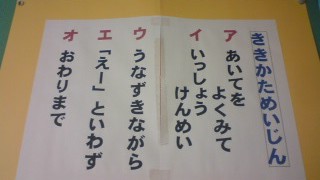 ききかためいじん
ア あいてを よくみて
イ いっしょう けんめい
ウ うなずきながら
エ 「えー」といわず
オ おわりまで